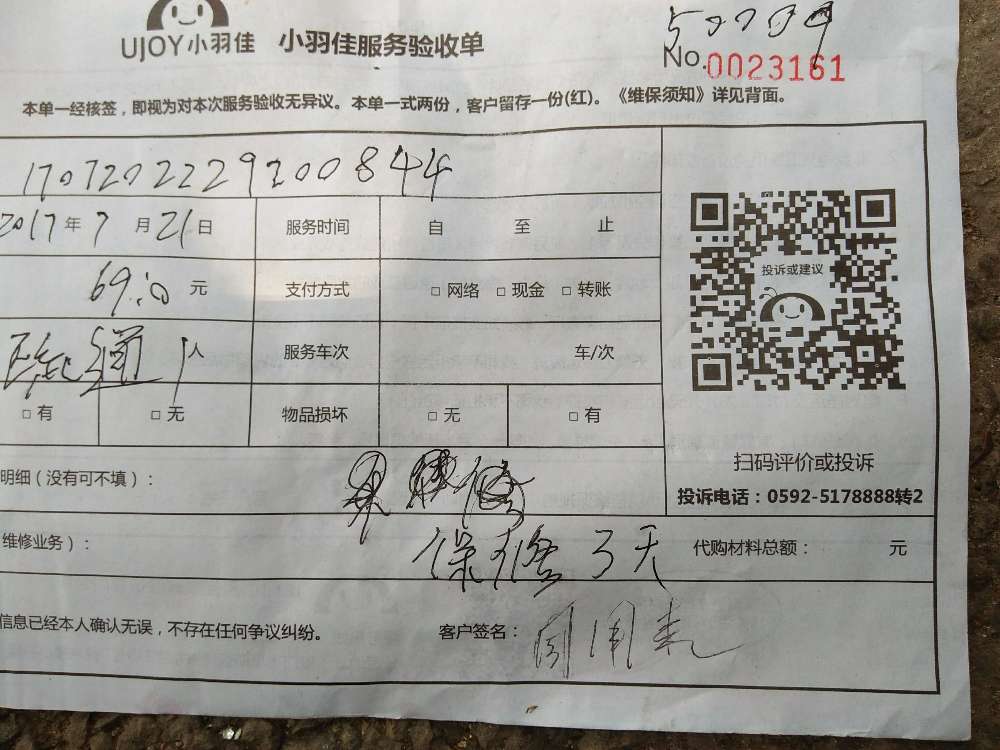 UJOY小羽佳 小羽佳服务验收单
No.0023161
本单一经核签，即视为对本次服务验收无异议。本单一式两份，客户留存一份(红)。《维保须知》详见背面。
1707202229200844
2017年7月21日 服务时间 自 至 止
69.00元 支付方式 □网络 □现金 □转账
通 1人 服务车次 车/次
□有 □无 物品损坏 □无 □有
投诉或建议
扫码评价或投诉
投诉电话：0592-5178888转2
明细（没有可不填）：
维修业务）： 保修3天 代购材料总额： 元
信息已经本人确认无误，不存在任何争议纠纷。 客户签名：